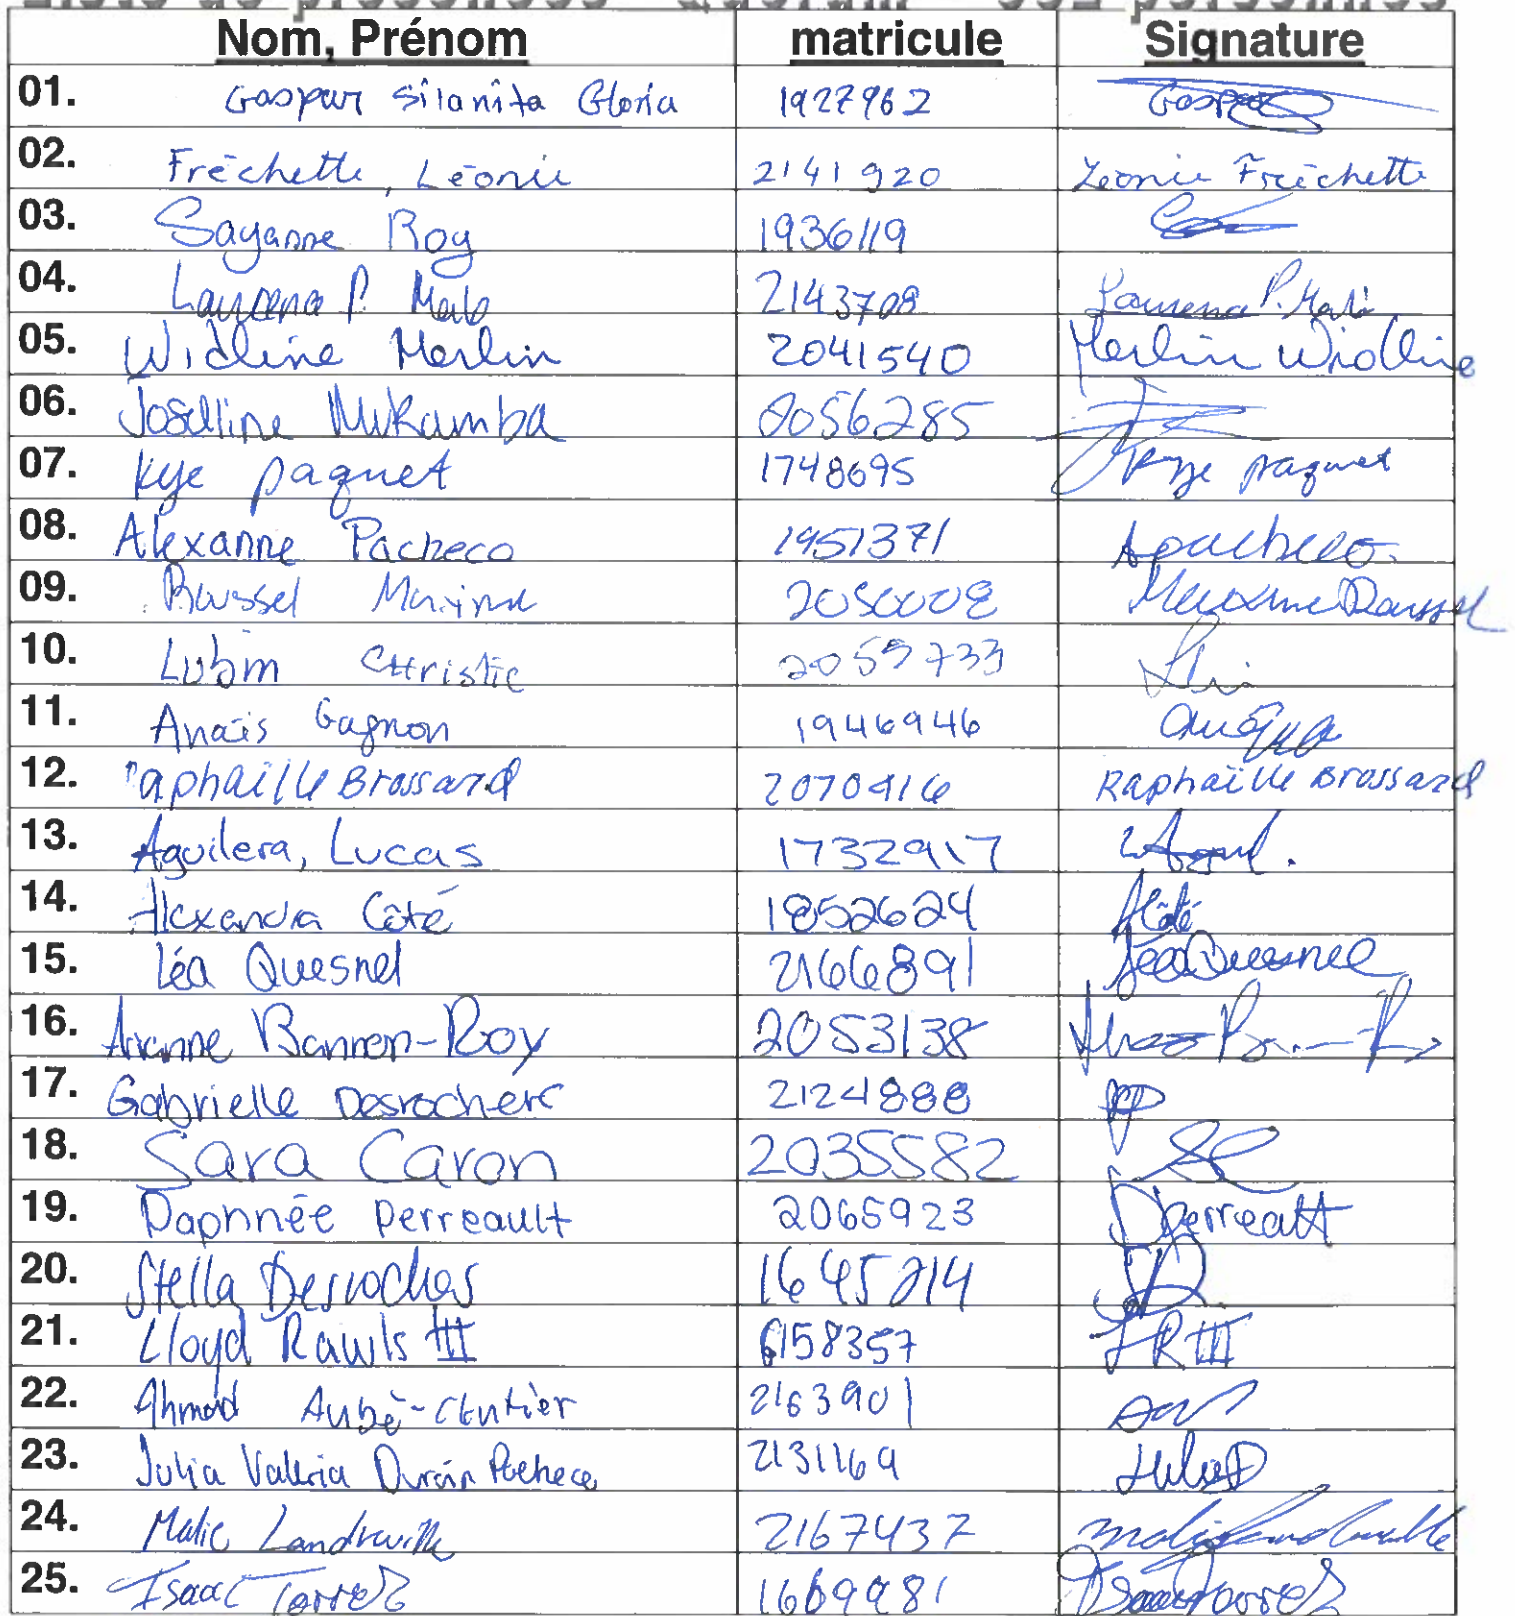 Liste de présences - Quorum - 352 personnes
Nom, Prénom matricule Signature
01. Gaspar Silanita Gloria 1927962 Gaspar
02. Fréchette, Léonie 2141920 Léonie Fréchette
03. Sayanne Roy 1936119
04. Laurena P. Malo 2143708 Laurena P. Malo
05. Widline Merlin 2041540 Merlin Widline
06. Joselline Mukamba 2056285
07. Kye paquet 1748695 Kye paquet
08. Alexanne Pacheco 1951371 Apacheco
09. Roussel Maxime 2050008 Maxime Roussel
10. Lubin Christie 2059733
11. Anaïs Gagnon 1946946
12. Raphaëlle Brossard 2070916 Raphaëlle Brossard
13. Aguilera, Lucas 1732917
14. Alexandra Côté 1852624 ACôté
15. Léa Quesnel 2166891 Léa Quesnel
16. Arianne Barron-Roy 2053138
17. Gabrielle Desrochers 2124888
18. Sara Caron 2035582 SC
19. Daphnée Perreault 2065923 DPerreault
20. Stella Desroches 1645214
21. Lloyd Rawls III 6158357 LR III
22. Ahmad Aubé-Cloutier 2163901
23. Julia Valeria Durán Pacheco 2131169 JuliaD
24. Malic Landreville 2167437 Malic Landreville
25. Isaac Torrez 1669981 Isaac Torrez